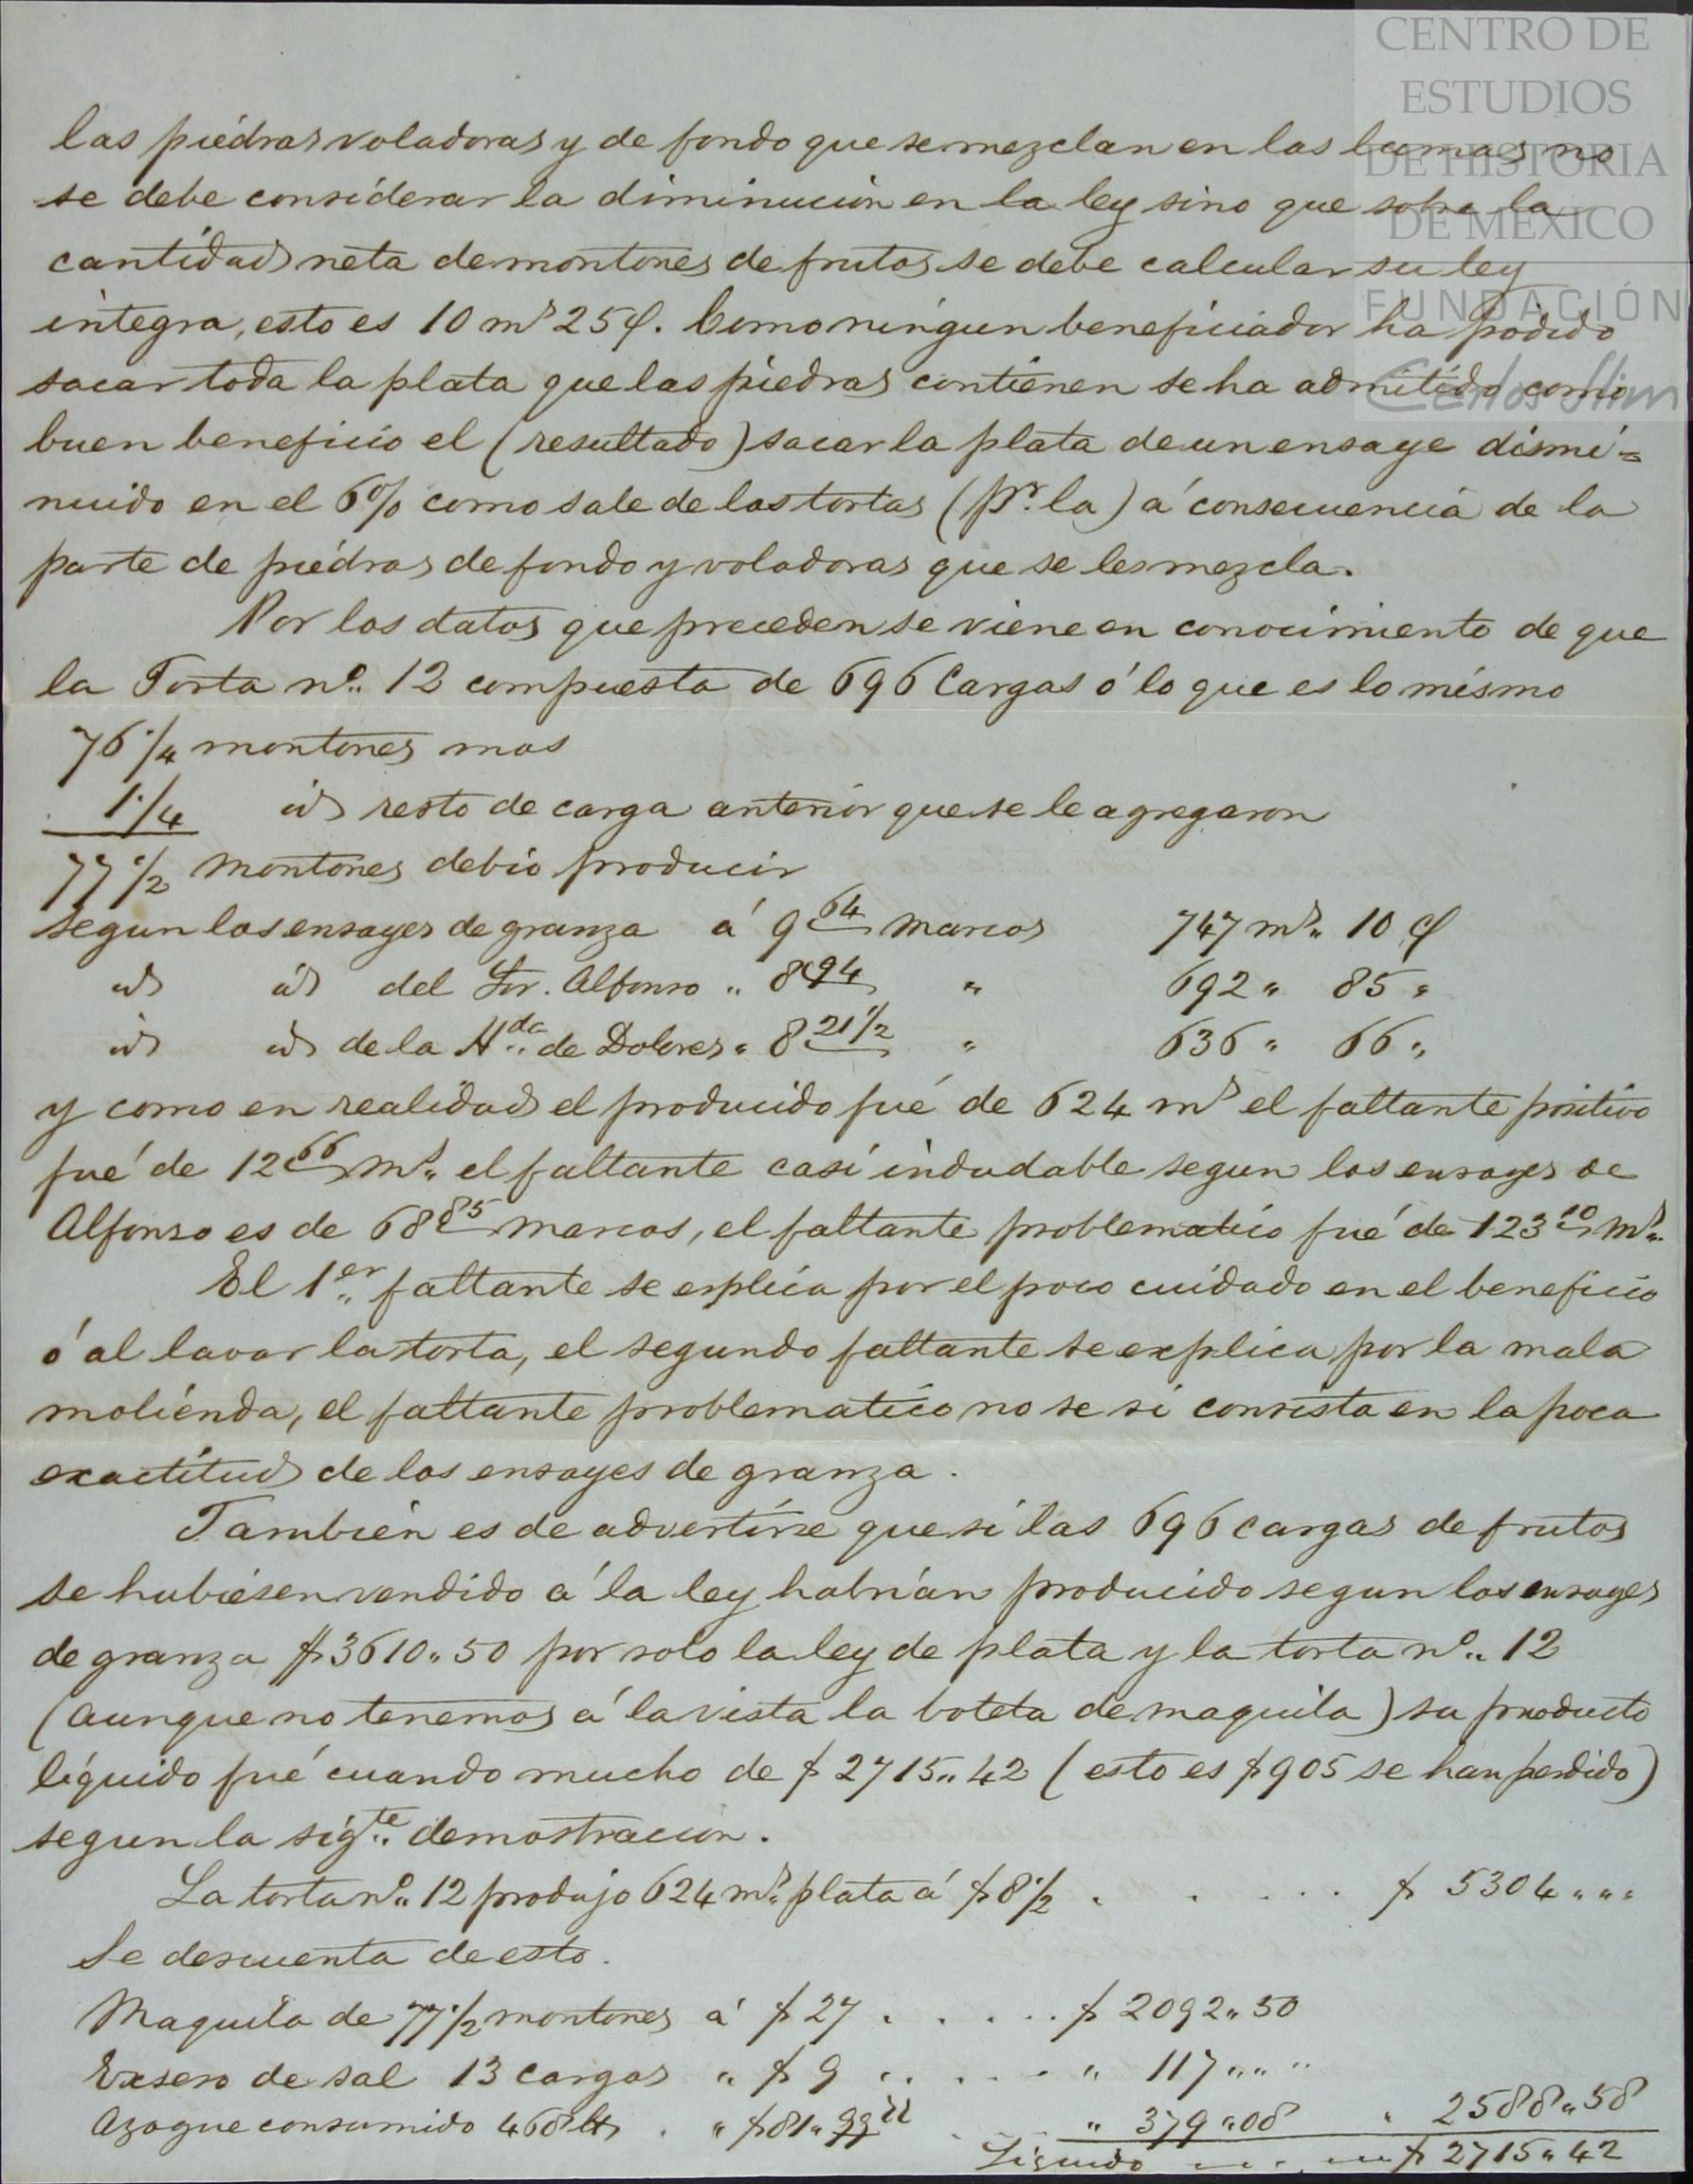 CENTRO DE
ESTUDIOS
DE HISTORIA
DE MÉXICO
FUNDACIÓN
Carlos Slim
las piedras voladoras y de fondo que se mezclan en las lamas no
se debe considerar la diminucion en la ley sino que sobre la
cantidad neta de montones de frutos se debe calcular su ley
integra, esto es 10 ms 25 c. Como ningun beneficiador ha podido
sacar toda la plata que las piedras contienen se ha admitido como
buen beneficio el (resultado) sacar la plata de un ensaye dismi=
nuido en el 6% como sale de las tortas (pr. la) á consecuencia de la
parte de piedras de fondo y voladoras que se les mezcla.
Por los datos que preceden se viene en conocimiento de que
la Torta no. 12 compuesta de 696 Cargas ó lo que es lo mismo
76 1/4 montones mas
1 1/4 id resto de carga anterior que se le agregaron
77 1/2 montones debio producir
segun los ensayes de granza á 9 64 marcos 747 ms. 10 c
id id del Sor. Alfonso " 8 94 " 692 " 85 "
id id de la Hda. de Dolores " 8 21 1/2 " 636 " 66 "
y como en realidad el producido fué de 624 ms el faltante positivo
fué de 12 66 ms. el faltante casi indudable segun los ensayes de
Alfonso es de 68 85 marcos, el faltante problematico fué de 123 10 ms.
El 1er. faltante se esplica por el poco cuidado en el beneficio
ó al lavar la torta, el segundo faltante se explica por la mala
molienda, el faltante problematico no se si consista en la poca
exactitud de los ensayes de granza.
Tambien es de advertirse que si las 696 cargas de frutos
se hubiesen vendido á la ley habrian producido segun los ensayes
de granza $3610.50 por solo la ley de plata y la torta no. 12
(aunque no tenemos á la vista la boleta de maquila) su producto
líquido fué cuando mucho de $2715.42 (esto es $905 se han perdido)
segun la sigte. demostracion.
La torta no. 12 produjo 624 ms. plata á $8 1/2 . . . . . $ 5304 " " "
Se descuenta de esto.
Maquila de 77 1/2 montones á $27 . . . . . $ 2092.50
Exseso de sal 13 cargas " $9 . . . . . " 117 " " "
Azogue consumido 468 lb . " $81. " 379.08 " 2588.58
Líquido . . . $ 2715.42